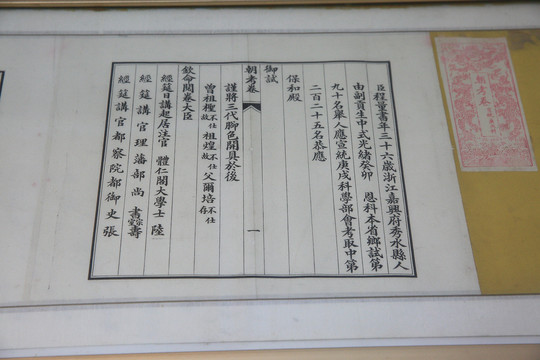 臣程量書年三十六歲浙江嘉興府秀水縣人
由副貢生中式光緒癸卯恩科本省鄉試第
九十名舉人應宣統庚戌科學部會考取中第
二百二十五名恭應
保和殿
御試
朝考卷
一
謹將三代腳色開具於後
曾祖權不仕故祖煌不仕故父爾培不仕存
欽命閱卷大臣
經筵日講起居注官體仁閣大學士陸
經筵講官理藩部尚書宗室壽
經筵講官都察院都御史張
朝考卷